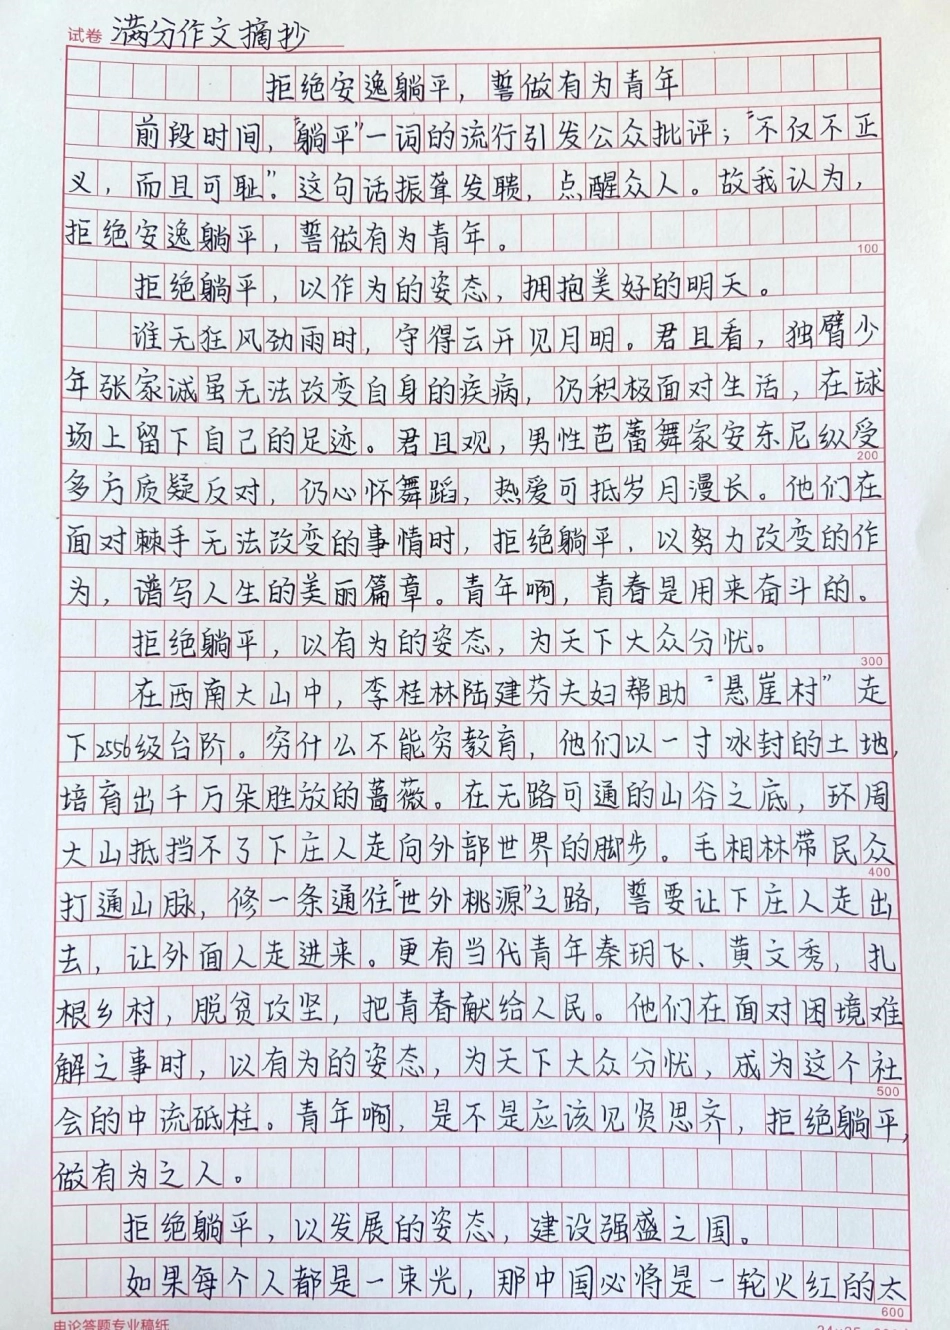 试卷 满分作文摘抄
拒绝安逸躺平，誓做有为青年
前段时间，“躺平”一词的流行引发公众批评；“不仅不正
义，而且可耻”。这句话振聋发聩，点醒众人。故我认为，
拒绝安逸躺平，誓做有为青年。
100
拒绝躺平，以作为的姿态，拥抱美好的明天。
谁无狂风劲雨时，守得云开见月明。君且看，独臂少
年张家诚虽无法改变自身的疾病，仍积极面对生活，在球
场上留下自己的足迹。君且观，男性芭蕾舞家安东尼纵受
200
多方质疑反对，仍心怀舞蹈，热爱可抵岁月漫长。他们在
面对棘手无法改变的事情时，拒绝躺平，以努力改变的作
为，谱写人生的美丽篇章。青年啊，青春是用来奋斗的。
拒绝躺平，以有为的姿态，为天下大众分忧。
300
在西南大山中，李桂林陆建芬夫妇帮助“悬崖村”走
下2556级台阶。穷什么不能穷教育，他们以一寸冰封的土地，
培育出千万朵胜放的蔷薇。在无路可通的山谷之底，环周
大山抵挡不了下庄人走向外部世界的脚步。毛相林带民众
400
打通山脉，修一条通往“世外桃源”之路，誓要让下庄人走出
去，让外面人走进来。更有当代青年秦玥飞、黄文秀，扎
根乡村，脱贫攻坚，把青春献给人民。他们在面对困境难
解之事时，以有为的姿态，为天下大众分忧，成为这个社
500
会的中流砥柱。青年啊，是不是应该见贤思齐，拒绝躺平，
做有为之人。
拒绝躺平，以发展的姿态，建设强盛之国。
如果每个人都是一束光，那中国必将是一轮火红的太
600
申论答题专业稿纸